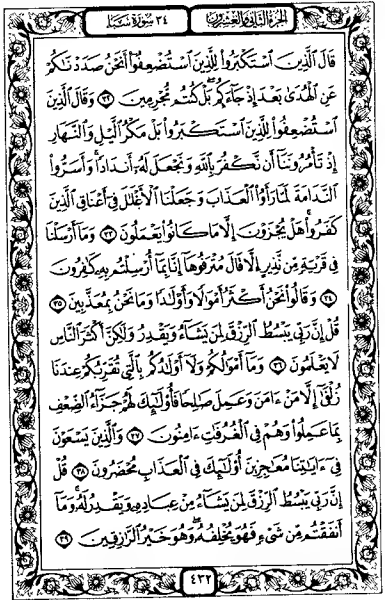 الجزء الثاني والعشرون ٣٤ سورة سبأ
قَالَ ٱلَّذِينَ ٱسۡتَكۡبَرُواْ لِلَّذِينَ ٱسۡتُضۡعِفُوٓاْ أَنَحۡنُ صَدَدۡنَٰكُمۡ
عَنِ ٱلۡهُدَىٰ بَعۡدَ إِذۡ جَآءَكُمۖ بَلۡ كُنتُم مُّجۡرِمِينَ ٣٢ وَقَالَ ٱلَّذِينَ
ٱسۡتُضۡعِفُواْ لِلَّذِينَ ٱسۡتَكۡبَرُواْ بَلۡ مَكۡرُ ٱلَّيۡلِ وَٱلنَّهَارِ
إِذۡ تَأۡمُرُونَنَآ أَن نَّكۡفُرَ بِٱللَّهِ وَنَجۡعَلَ لَهُۥٓ أَندَادٗاۚ وَأَسَرُّواْ
ٱلنَّدَامَةَ لَمَّا رَأَوُاْ ٱلۡعَذَابَۚ وَجَعَلۡنَا ٱلۡأَغۡلَٰلَ فِيٓ أَعۡنَاقِ ٱلَّذِينَ
كَفَرُواْۖ هَلۡ يُجۡزَوۡنَ إِلَّا مَا كَانُواْ يَعۡمَلُونَ ٣٣ وَمَآ أَرۡسَلۡنَا
فِي قَرۡيَةٖ مِّن نَّذِيرٍ إِلَّا قَالَ مُتۡرَفُوهَآ إِنَّا بِمَآ أُرۡسِلۡتُم بِهِۦ كَٰفِرُونَ
٣٤ وَقَالُواْ نَحۡنُ أَكۡثَرُ أَمۡوَٰلٗا وَأَوۡلَٰدٗا وَمَا نَحۡنُ بِمُعَذَّبِينَ ٣٥
قُلۡ إِنَّ رَبِّي يَبۡسُطُ ٱلرِّزۡقَ لِمَن يَشَآءُ وَيَقۡدِرُ وَلَٰكِنَّ أَكۡثَرَ ٱلنَّاسِ
لَا يَعۡلَمُونَ ٣٦ وَمَآ أَمۡوَٰلُكُمۡ وَلَآ أَوۡلَٰدُكُم بِٱلَّتِي تُقَرِّبُكُمۡ عِندَنَا
زُلۡفَىٰٓ إِلَّا مَنۡ ءَامَنَ وَعَمِلَ صَٰلِحٗا فَأُوْلَٰٓئِكَ لَهُمۡ جَزَآءُ ٱلضِّعۡفِ
بِمَا عَمِلُواْ وَهُمۡ فِي ٱلۡغُرُفَٰتِ ءَامِنُونَ ٣٧ وَٱلَّذِينَ يَسۡعَوۡنَ
فِيٓ ءَايَٰتِنَا مُعَٰجِزِينَ أُوْلَٰٓئِكَ فِي ٱلۡعَذَابِ مُحۡضَرُونَ ٣٨ قُلۡ
إِنَّ رَبِّي يَبۡسُطُ ٱلرِّزۡقَ لِمَن يَشَآءُ مِنۡ عِبَادِهِۦ وَيَقۡدِرُ لَهُۥۚ وَمَآ
أَنفَقۡتُم مِّن شَيۡءٖ فَهُوَ يُخۡلِفُهُۥۖ وَهُوَ خَيۡرُ ٱلرَّٰزِقِينَ ٣٩
٤٣٢